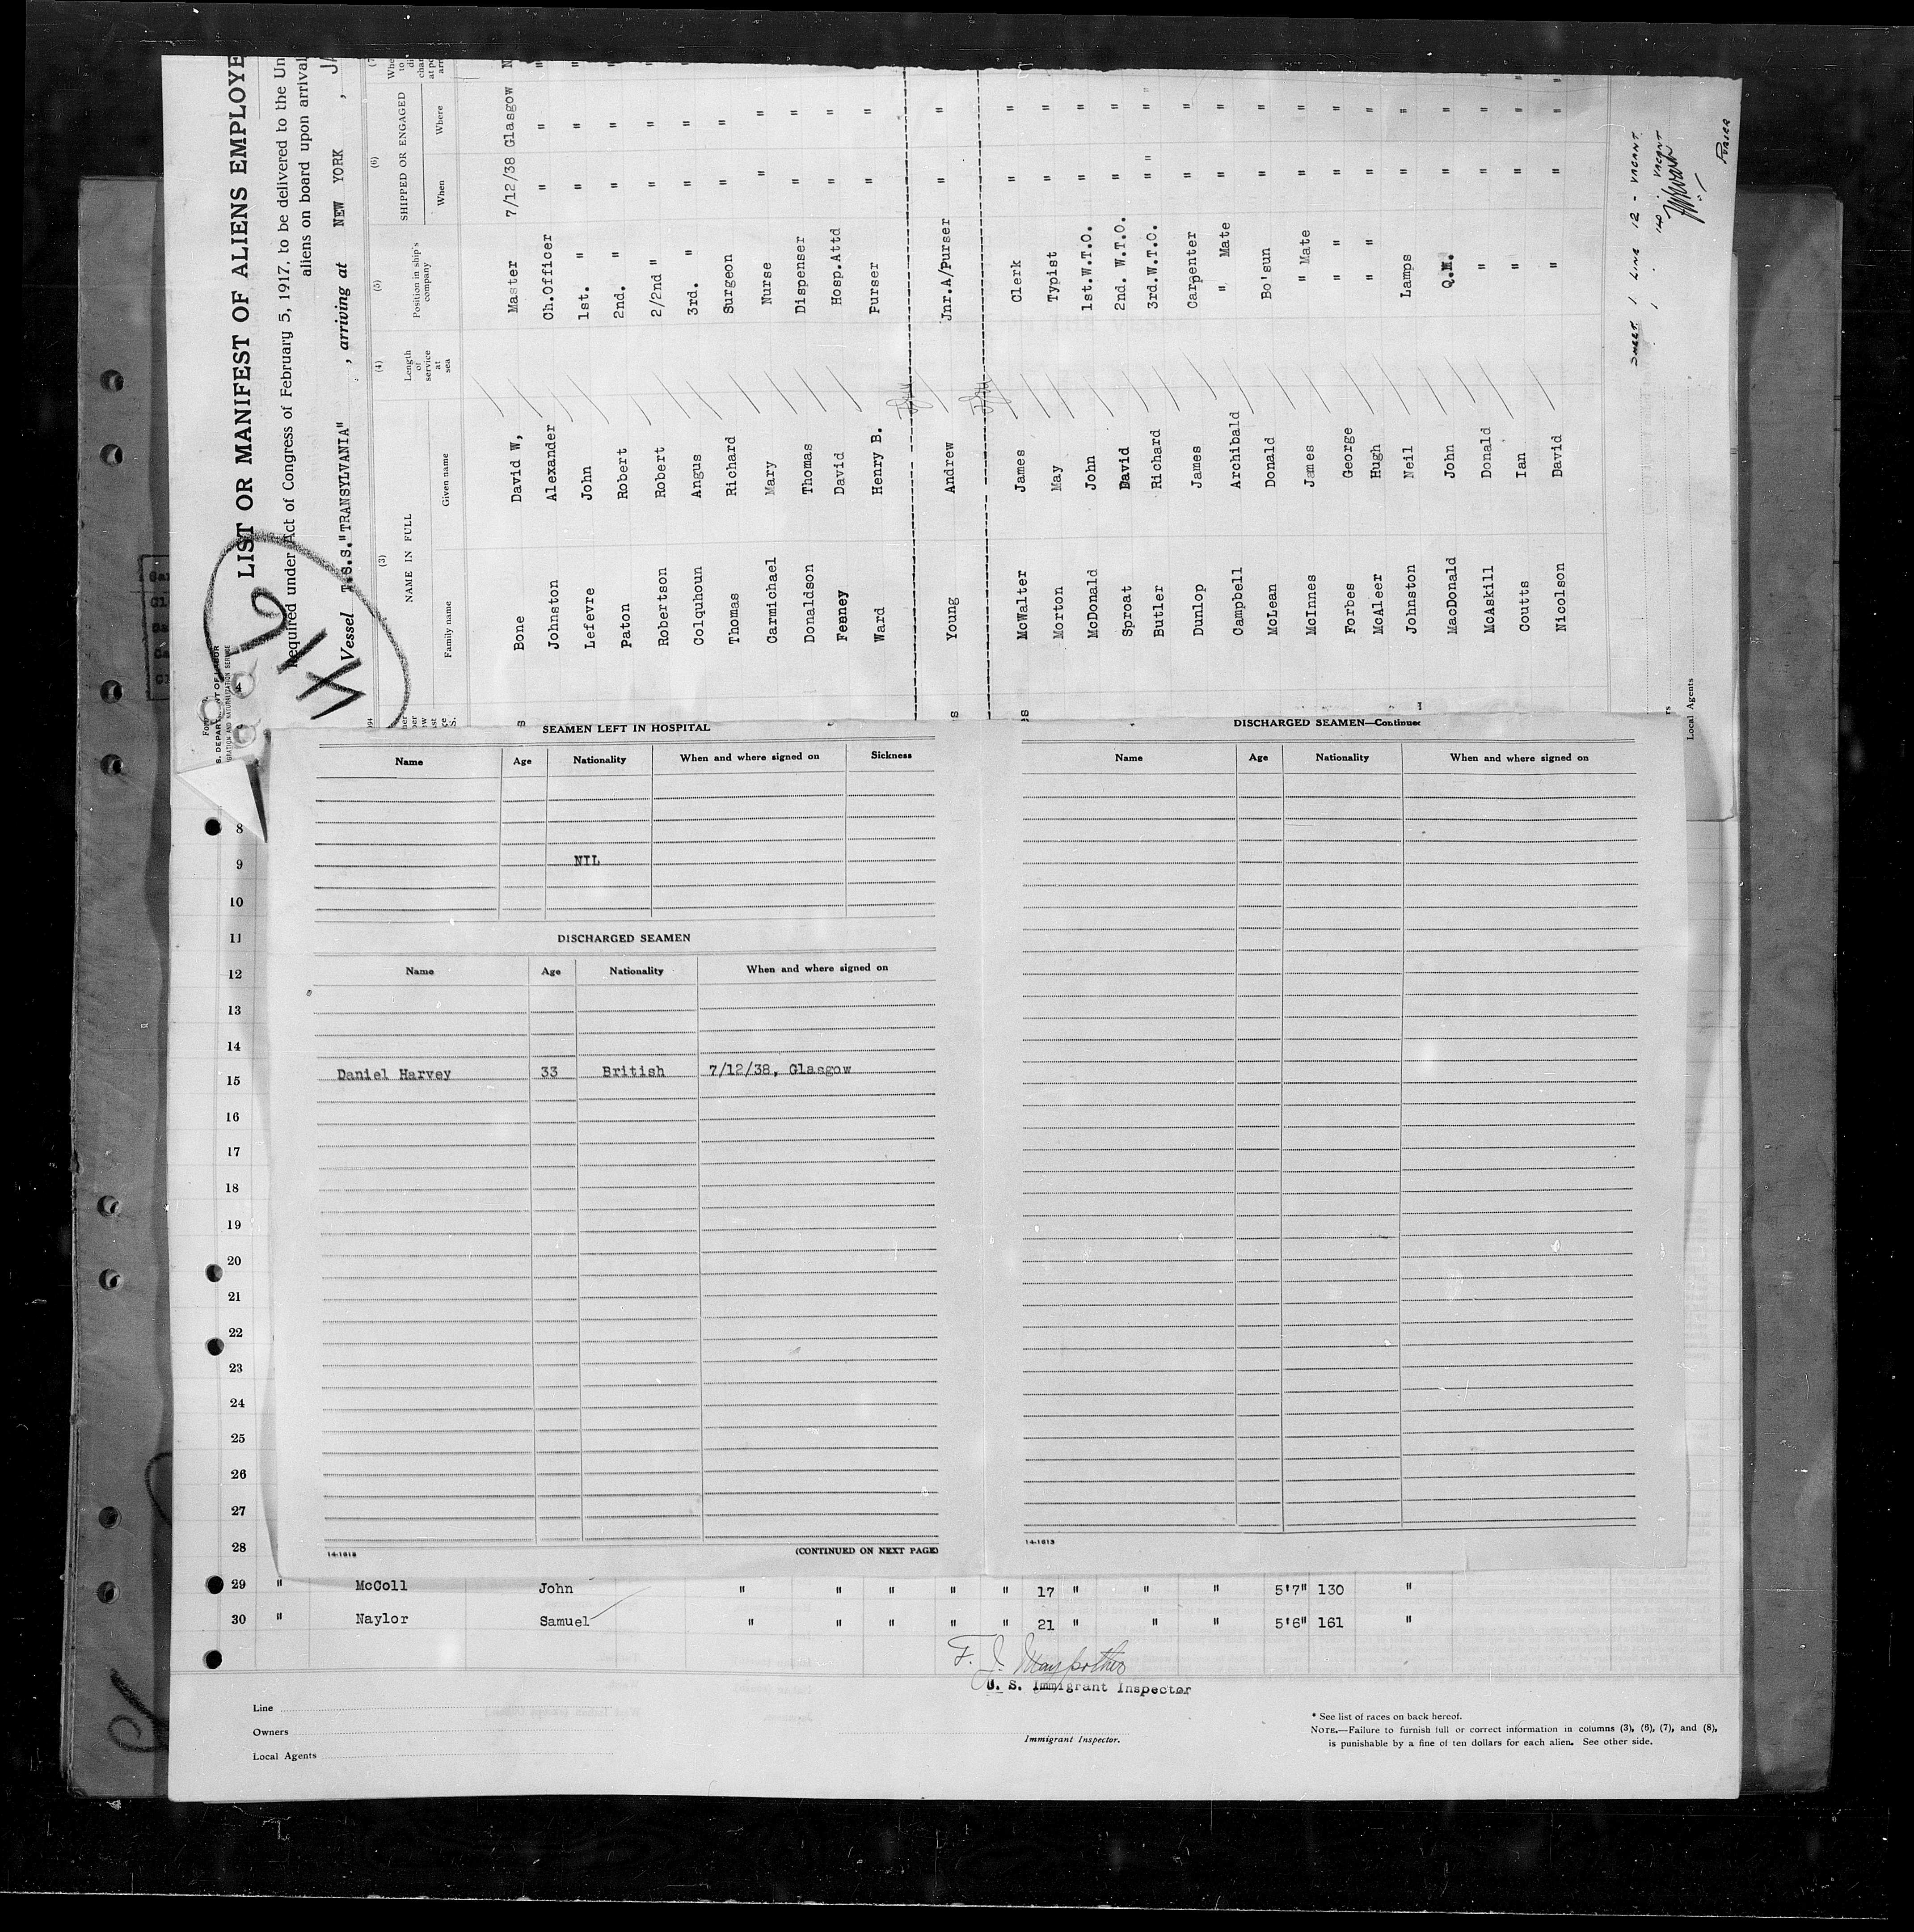 LIST OR MANIFEST OF ALIENS EMPLOYE
Required under Act of Congress of February 5, 1917, to be delivered to the Un
aliens on board upon arrival
Vessel T.S.S."TRANSYLVANIA" , arriving at NEW YORK , JA
(3) (4) (5) (6)
NAME IN FULL Length of service at sea Position in ship's company SHIPPED OR ENGAGED
Family name Given name When Where
Bone David W, Master 7/12/38 Glasgow N
Johnston Alexander Ch.Officer " " "
Lefevre John 1st. " " " "
Paton Robert 2nd. " " " "
Robertson Robert 2/2nd " " " "
Colquhoun Angus 3rd. " " " "
Thomas Richard Surgeon " "
Carmichael Mary Nurse " "
Donaldson Thomas Dispenser " "
Fenney David Hosp.Attd " "
Ward Henry B. Purser " "
Young Andrew Jnr.A/Purser " "
McWalter James Clerk " "
Morton May Typist " "
McDonald John 1st.W.T.O. " "
Sproat David 2nd. W.T.O. " "
Butler Richard 3rd.W.T.O. " "
Dunlop James Carpenter " "
Campbell Archibald " Mate " "
McLean Donald Bo'sun " "
McInnes James " Mate " "
Forbes George " " " "
McAleer Hugh " " " "
Johnston Neil Lamps " "
MacDonald John Q.M. " "
McAskill Donald " " " "
Coutts Ian " " " "
Nicolson David " " " "
SHEET 1 LINE 12 - VACANT
14 . VACANT
Purser
Local Agents
SEAMEN LEFT IN HOSPITAL
Name Age Nationality When and where signed on Sickness
NIL
DISCHARGED SEAMEN
Name Age Nationality When and where signed on
Daniel Harvey 33 British 7/12/38, Glasgow
14-1613 (CONTINUED ON NEXT PAGE)
DISCHARGED SEAMEN—Continued
Name Age Nationality When and where signed on
14-1613
8
9
10
11
12
13
14
15
16
17
18
19
20
21
22
23
24
25
26
27
28
29 " McColl John " " " " " 17 " " " 5'7" 130 "
30 " Naylor Samuel " " " " " 21 " " " 5'6" 161 "
F. J.
U. S. Immigrant Inspector
Line
Owners
Local Agents
Immigrant Inspector.
* See list of races on back hereof.
NOTE.—Failure to furnish full or correct information in columns (3), (6), (7), and (8),
is punishable by a fine of ten dollars for each alien. See other side.